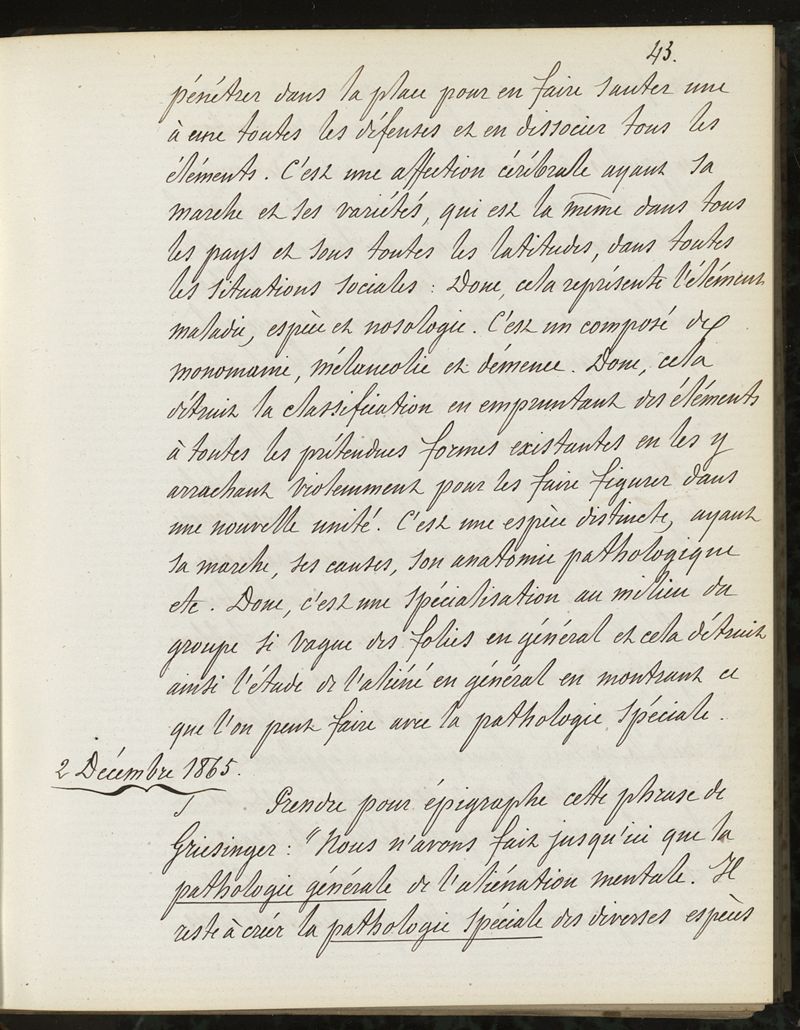 43.
pénétrer dans la place pour en faire sauter une
à une toutes les défenses et en dissocier tous les
éléments. C'est une affection cérébrale ayant sa
marche et ses variétés, qui est la même dans tous
les pays et sous toutes les latitudes, dans toutes
les situations sociales : Donc, cela représente l'élément
maladie, espèce et nosologie. C'est un composé de
monomanie, mélancolie et démence. Donc, cela
détruit la classification en empruntant des éléments
à toutes les prétendues formes existantes en les y
arrachant violemment pour les faire figurer dans
une nouvelle unité. C'est une espèce distincte, ayant
sa marche, ses causes, son anatomie pathologique
etc. Donc, c'est une spécialisation au milieu du
groupe si vague des folies en général et cela détruit
ainsi l'étude de l'aliéné en général en montrant ce
que l'on peut faire avec la pathologie spéciale.
2 Décembre 1865.
Prendre pour épigraphe cette phrase de
Griesinger : "Nous n'avons fait jusqu'ici que la
pathologie générale de l'aliénation mentale. Il
reste à créer la pathologie spéciale des diverses espèces